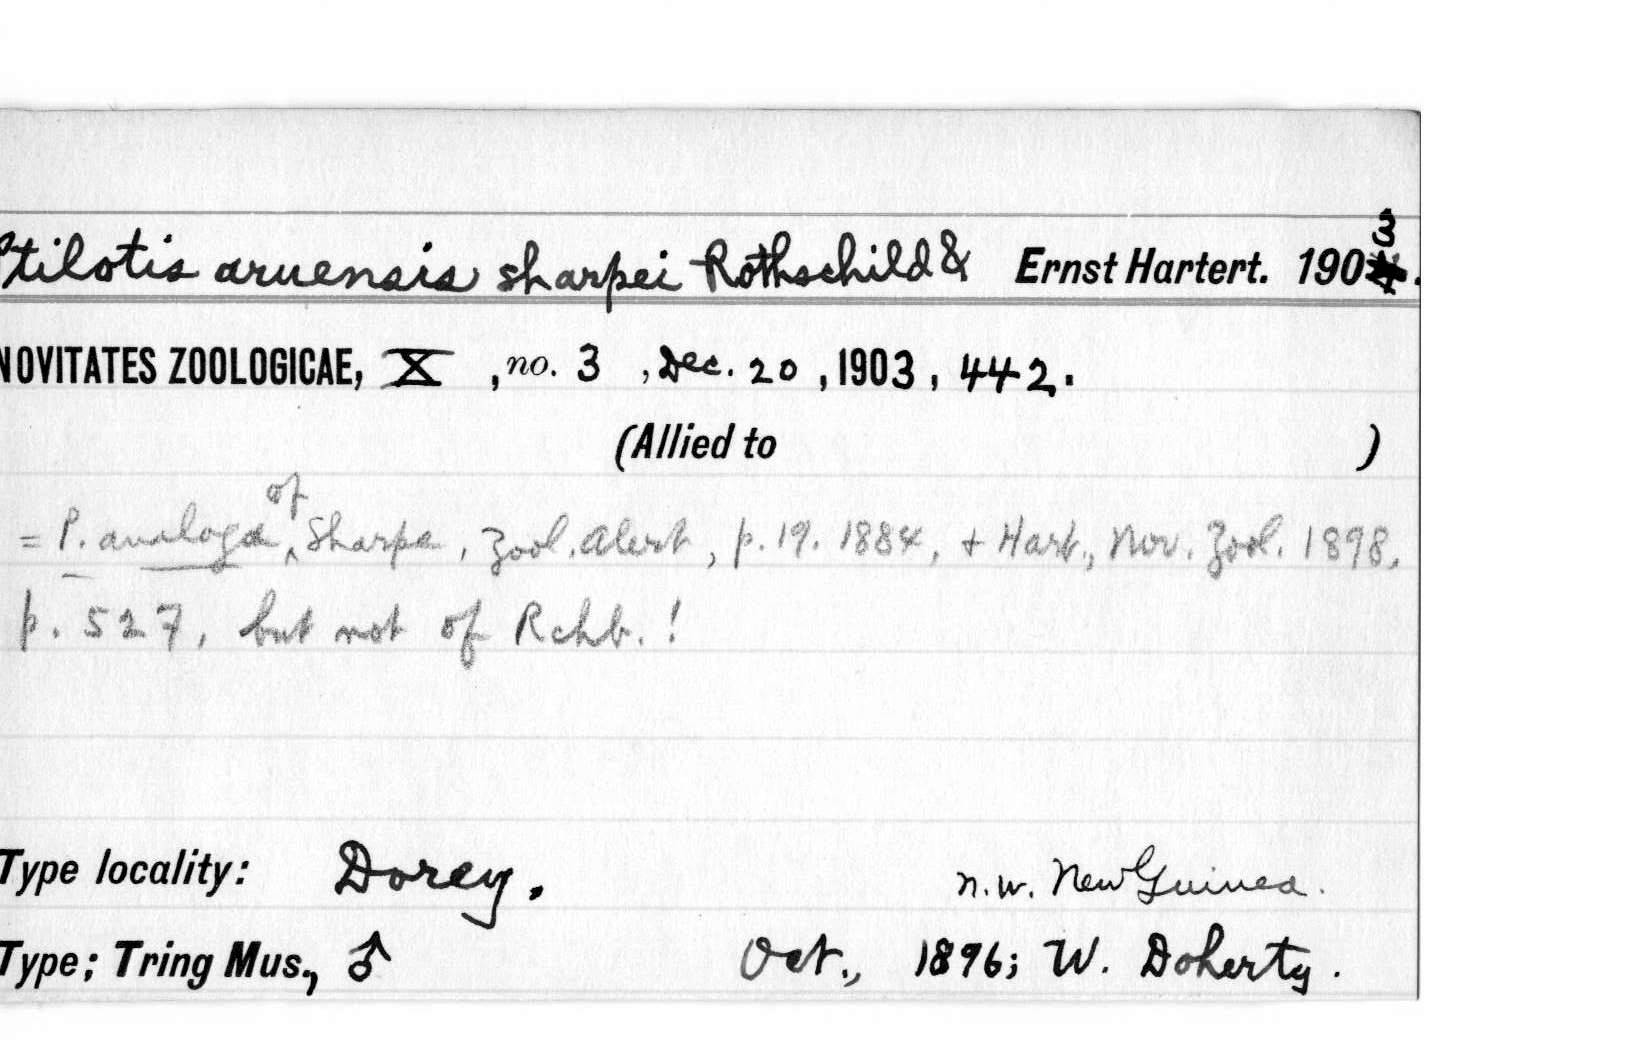 Ptilotis aruensis sharpei Rothschild & Ernst Hartert. 1903.
NOVITATES ZOOLOGICAE, X, no. 3, Dec. 20, 1903, 442.
(Allied to )
= P. analoga of Sharpe, Zool. Alert, p. 19. 1884, + Hart., Nov. Zool. 1898,
p. 527, but not of Rchb.!
Type locality: Dorey, n.w. New Guinea.
Type; Tring Mus., ♂ Oct., 1896; W. Doherty.